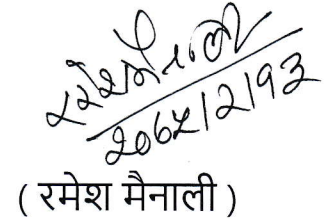 रमेश मैनाली
२०६५।२।१३
( रमेश मैनाली )